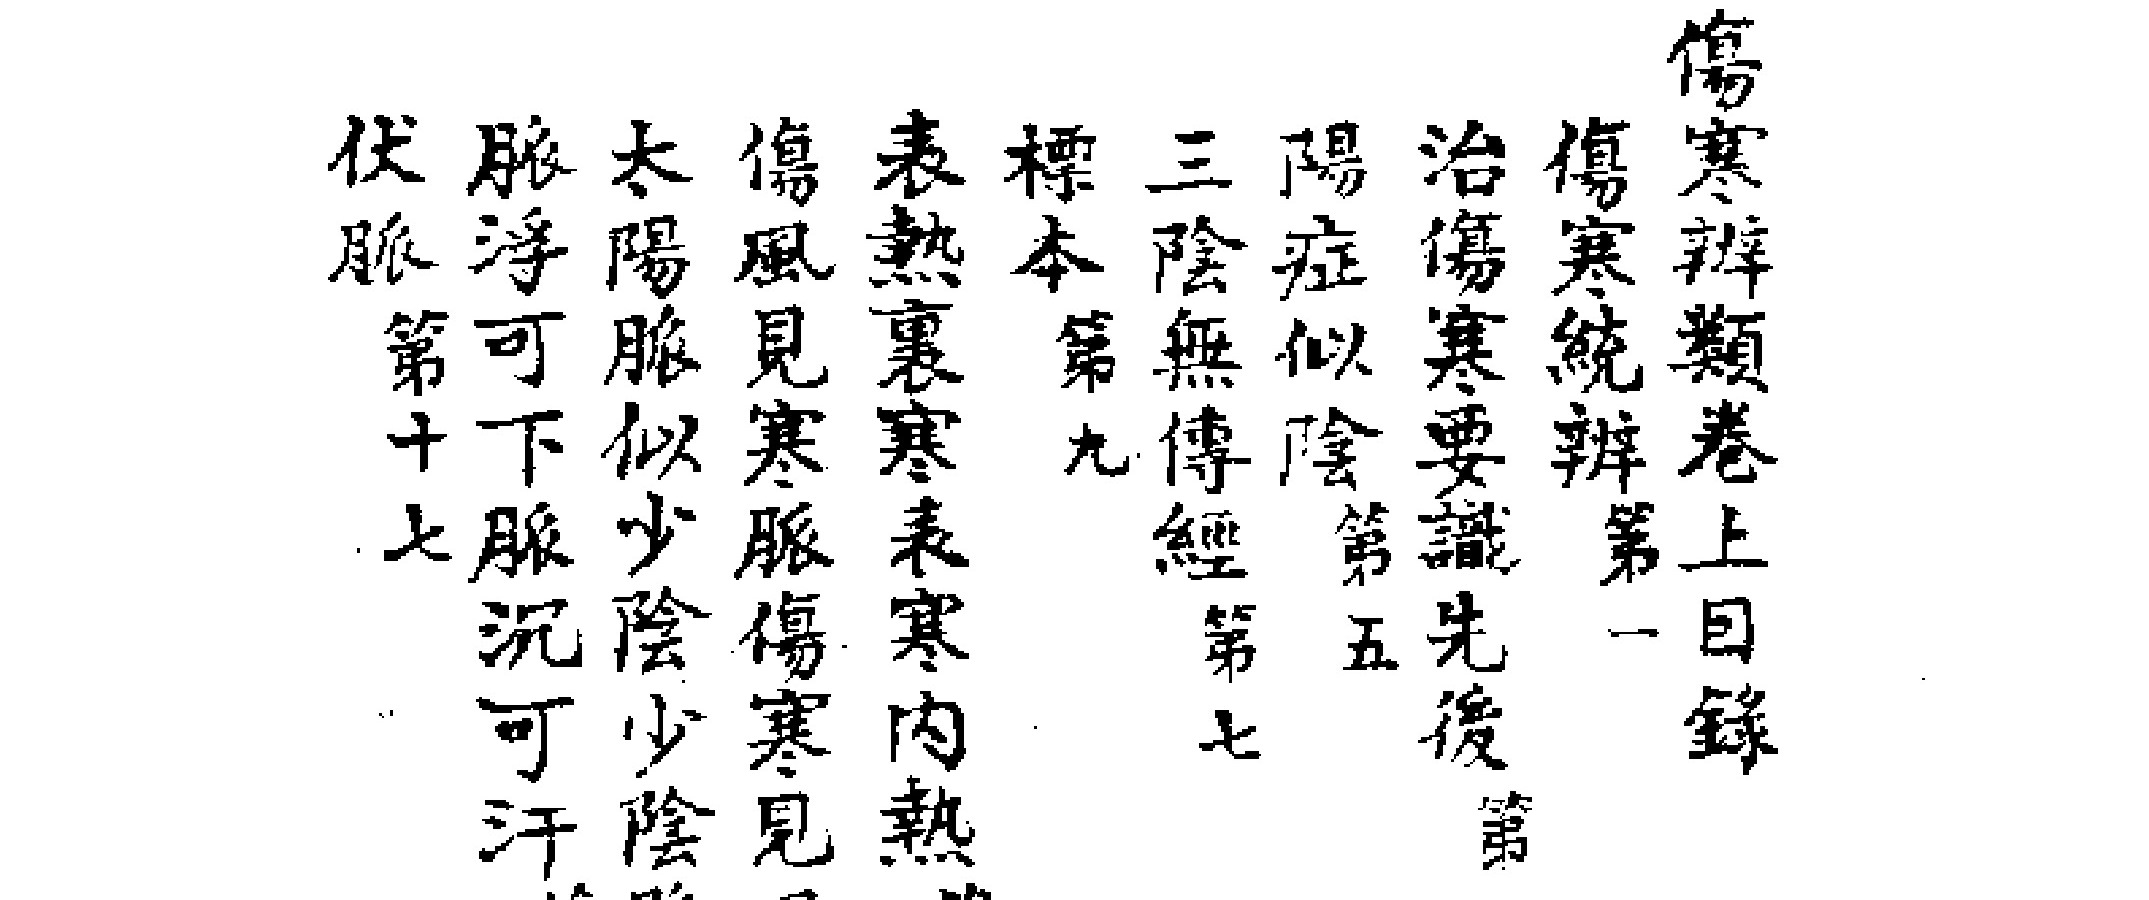 傷寒辨類卷上目錄
傷寒統辨第一
治傷寒要識先後第
陽症似陰第五
三陰無傳經第七
標本第九
表熱裏寒表寒內熱
傷風見寒脈傷寒見
太陽脈似少陰少陰
脈浮可下脈沉可汗
伏脈第十七